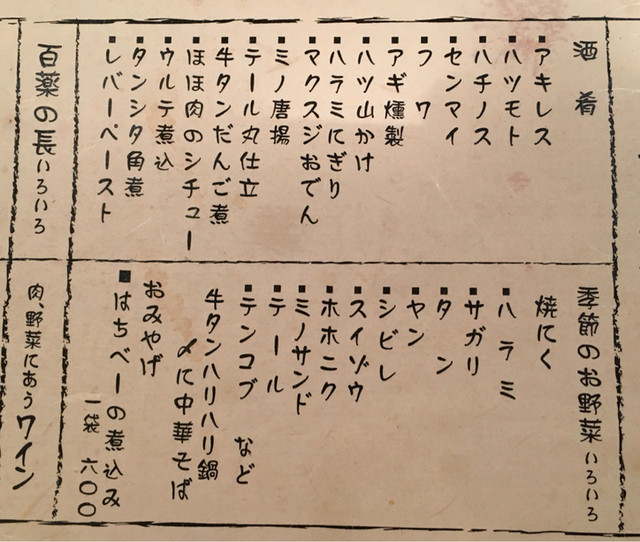 酒肴
■アキレス
■ハツモト
■ハチノス
■センマイ
■フワ
■アギ燻製
■ハツ山かけ
■ハラミにぎり
■マクスジおでん
■ミノ唐揚
■テール丸仕立
■牛タンだんご煮
■ほほ肉のシチュー
■ウルテ煮込
■タンシタ角煮
■レバーペースト
百薬の長いろいろ
季節のお野菜いろいろ
焼にく
■ハラミ
■サガリ
■タン
■ヤン
■シビレ
■スイゾウ
■ホホニク
■ミノサンド
■テール
■テンコブ など
牛タンハリハリ鍋
〆に中華そば
おみやげ
■はちべーの煮込み
一袋 六〇〇
肉、野菜にあうワイン